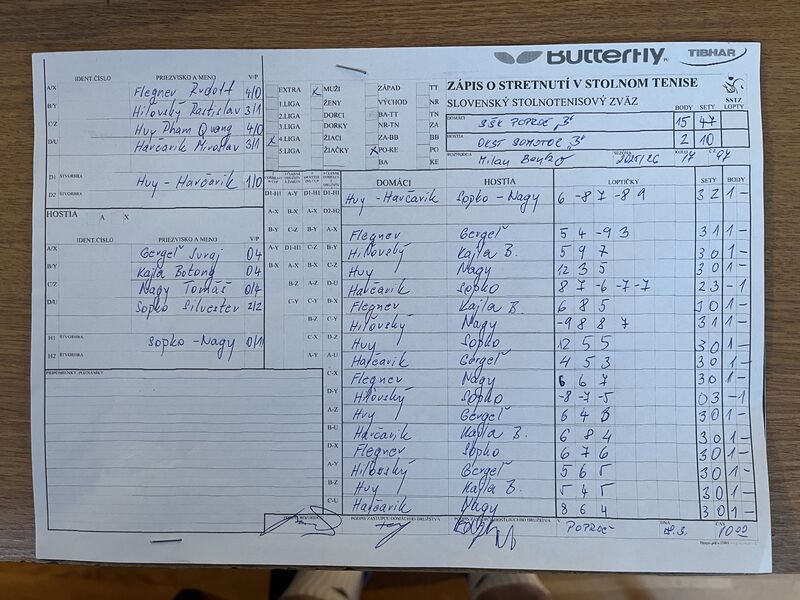 Butterfly TIBHAR
ZÁPIS O STRETNUTÍ V STOLNOM TENISE
SLOVENSKÝ STOLNOTENISOVÝ ZVÄZ
SSTZ
BODY SETY LOPTY
DOMÁCI SŠK POPROČ „B" 15 47
HOSTIA OKST SOMOTOR „B" 2 10
ROZHODCA Milan SEZÓNA 2025/26 KOLO 17
EXTRA X MUŽI ZÁPAD TT
1.LIGA ŽENY VÝCHOD NR
2.LIGA DORCI BA-TT TN
3.LIGA DORKY NR-TN ZA
X 4.LIGA ŽIACI ZA-BB BB
5.LIGA ŽIAČKY X PO-KE PO
BA KE
IDENT.ČÍSLO PRIEZVISKO A MENO V/P
A/X Flegner Rudolf 4/0
B/Y Hiľovský Rastislav 3/1
C/Z Huy Pham Quang 4/0
D/U Harčarik Miroslav 3/1
D1 ŠTVORHRA Huy - Harčarik 1/0
D2
HOSTIA A X
IDENT.ČÍSLO PRIEZVISKO A MENO V/P
A/X Gergeľ Juraj 0/4
B/Y Kajla Botond 0/4
C/Z Nagy Tomáš 0/4
D/U Sopko Silvester 2/2
H1 ŠTVORHRA Sopko - Nagy 0/1
H2 ŠTVORHRA
PRIPOMIENKY, POZNÁMKY
DOMÁCI HOSTIA LOPTIČKY SETY BODY
D1-H1 A-Y D1-H1 D1-H1 Huy - Harčarik Sopko - Nagy 6 -8 7 -8 9 3 2 1 -
A-X B-X A-X D2-H2
B-Y C-Z B-Y A-X Flegner Gergeľ 5 4 -9 3 3 1 1 -
A-Y D1-H1 C-Z B-Y Hiľovský Kajla B. 5 9 7 3 0 1 -
B-X A-X B-X C-Z Huy Nagy 12 3 5 3 0 1 -
B-Z A-Z D-U Harčarik Sopko 8 7 -6 -7 -7 2 3 - 1
C-Y C-Y B-X Flegner Kajla B. 6 8 5 3 0 1 -
B-Z C-Y Hiľovský Nagy -9 8 8 7 3 1 1 -
C-X D-Z Huy Sopko 12 5 5 3 0 1 -
A-Y A-U Harčarik Gergeľ 4 5 3 3 0 1 -
C-X Flegner Nagy 6 6 7 3 0 1 -
D-Y Hiľovský Sopko -8 -7 -5 0 3 - 1
A-Z Huy Gergeľ 6 4 3 3 0 1 -
B-U Harčarik Kajla B. 6 8 4 3 0 1 -
D-X Flegner Sopko 6 7 6 3 0 1 -
A-Y Hiľovský Gergeľ 5 6 5 3 0 1 -
B-Z Huy Kajla B. 5 4 5 3 0 1 -
C-U Harčarik Nagy 8 6 4 3 0 1 -
PODPIS ZÁSTUPCU DOMÁCEHO DRUŽSTVA PODPIS ZÁSTUPCU HOSŤUJÚCEHO DRUŽSTVA V POPROČ DŇA ČAS 10 00